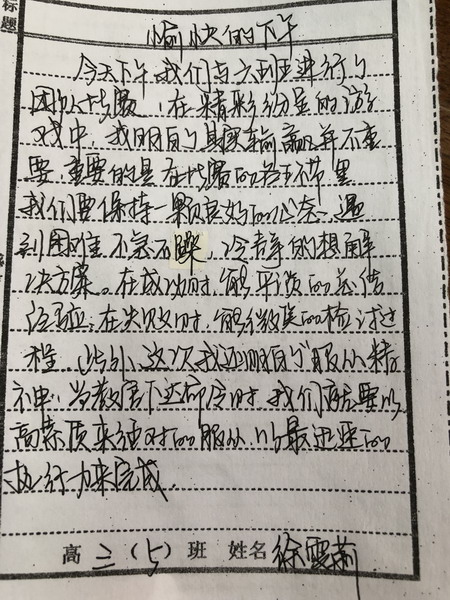 标题
愉快的下午
今天下午,我们与六班进行了
团队比赛,在精彩纷呈的游
戏中,我明白了其实输赢并不重
要,重要的是在比赛的各环节里
我们要保持一颗良好的心态,遇
到困难不急不躁,冷静的想解
决方案。在成功时,能平淡的总结
经验,在失败时,能微笑的检讨过
程。此外,这次我还明白了服从精
神,当教官下达命令时,我们都要以
高素质来绝对的服从,以最迅速的
执行力来完成.
高二(5)班 姓名 徐雯莉